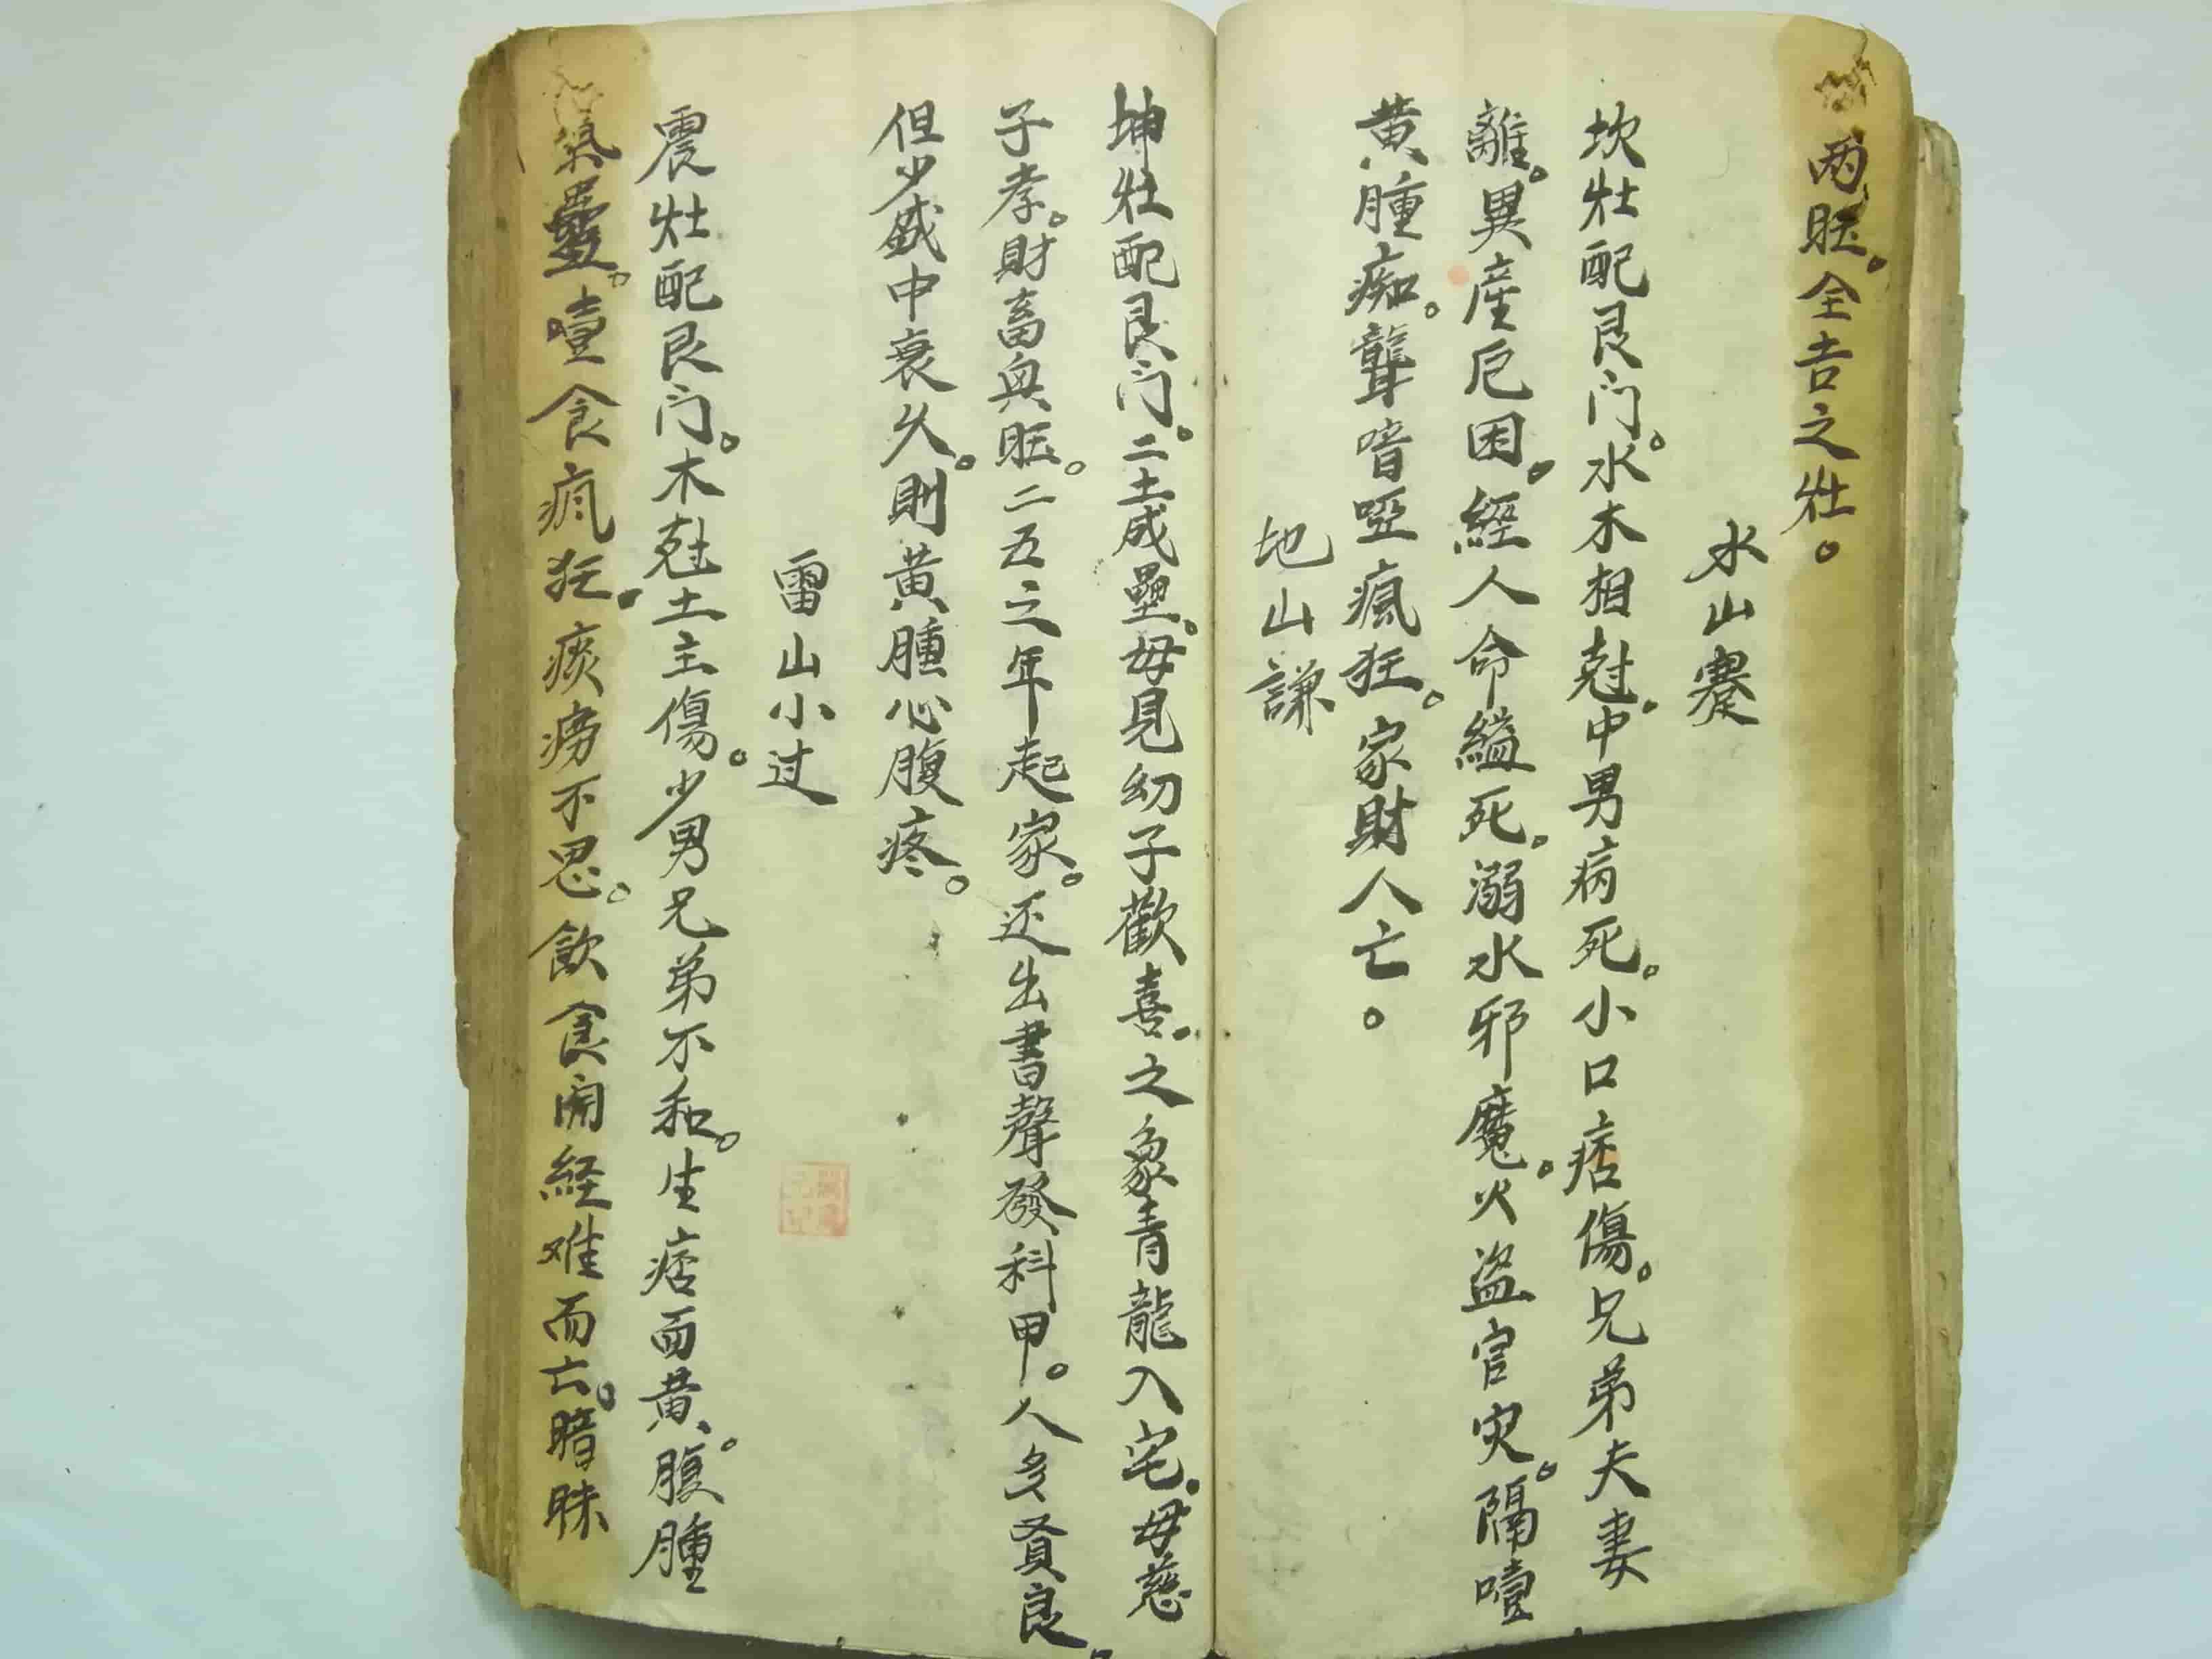 两旺。全吉之灶。
水山蹇
坎灶配艮门。水木相尅。中男病死。小口痞傷。兄弟夫妻
離。異産厄困。經人命縊死。溺水邪魔。火盗官灾。隔噎
黄腫痴。聾喑啞瘋狂。家財人亡。
地山謙
坤灶配艮门。二土成壘。母見幼子歡喜。之象青龍入宅。母慈
子孝。財畜興旺。二五之年起家。还出書聲發科甲。人多賢良。
但少盛中衰久。則黄腫心腹疼。
雷山小过
震灶配艮门。木尅土主傷。少男兄弟不和。生痞面黄。腹腫
氣蠱。噎食瘋狂。痰癆不思。飲食闹経难而亡。暗昧